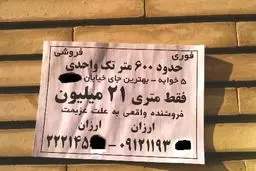 فوری فروشی
حدود ۶۰۰ متر تک واحدی
۵ خوابه - بهترین جای خیابان
فقط متری ۲۱ میلیون
فروشنده واقعی به علت عزیمت
ارزان ارزان
۲۲۲۱۴۵ - ۰۹۱۲۱۱۹۳